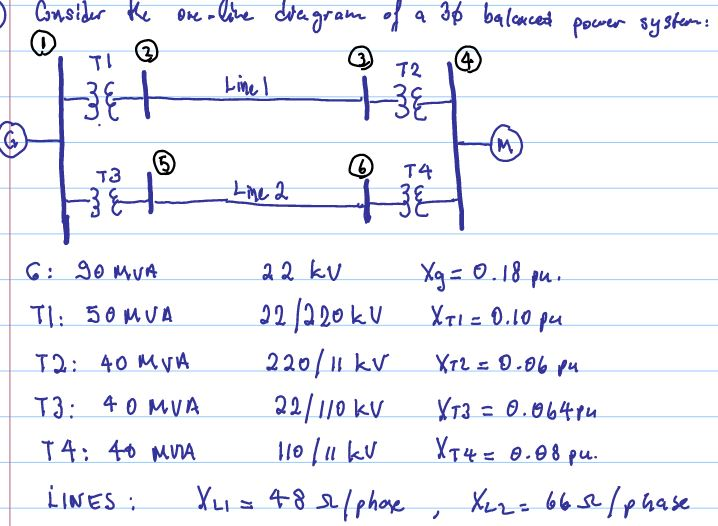 Consider the one-line diagram of a 3φ balanced power system:
① ② ③ ④
T1 Line 1 T2
G M
⑤ ⑥
T3 Line 2 T4
G: 90 MVA 22 kV Xg = 0.18 pu.
T1: 50 MVA 22/220 kV XT1 = 0.10 pu
T2: 40 MVA 220/11 kV XT2 = 0.06 pu
T3: 40 MVA 22/110 kV XT3 = 0.064 pu
T4: 40 MVA 110/11 kV XT4 = 0.08 pu.
LINES: XL1 = 48 Ω/phase, XL2 = 66 Ω/phase